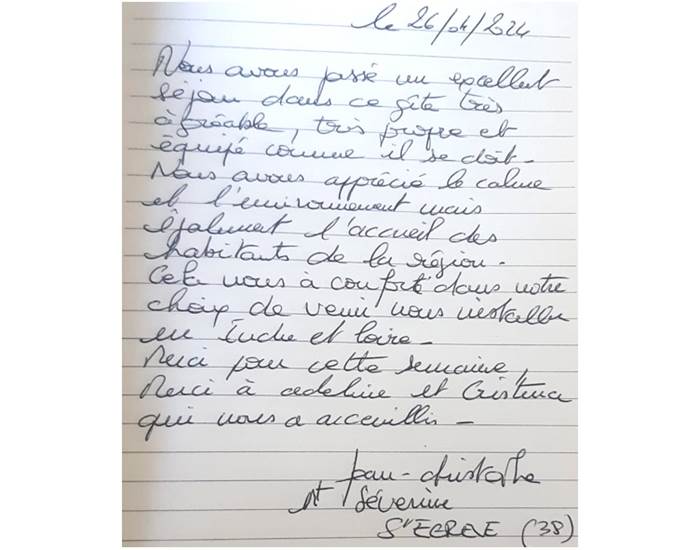 le 26/04/2024
Nous avons passé un excellent
séjour dans ce gîte très
agréable, très propre et
équipé comme il se doit.
Nous avons apprécié le calme
et l'environnement mais
également l'accueil des
habitants de la région.
Cela nous à confort dans notre
choix de venir nous installer
en Indre et Loire.
Merci pour cette semaine,
Merci à adeline et Cristina
qui nous a acceuillis -
Jean-christophe
et Séverine
St EGREVE (38)